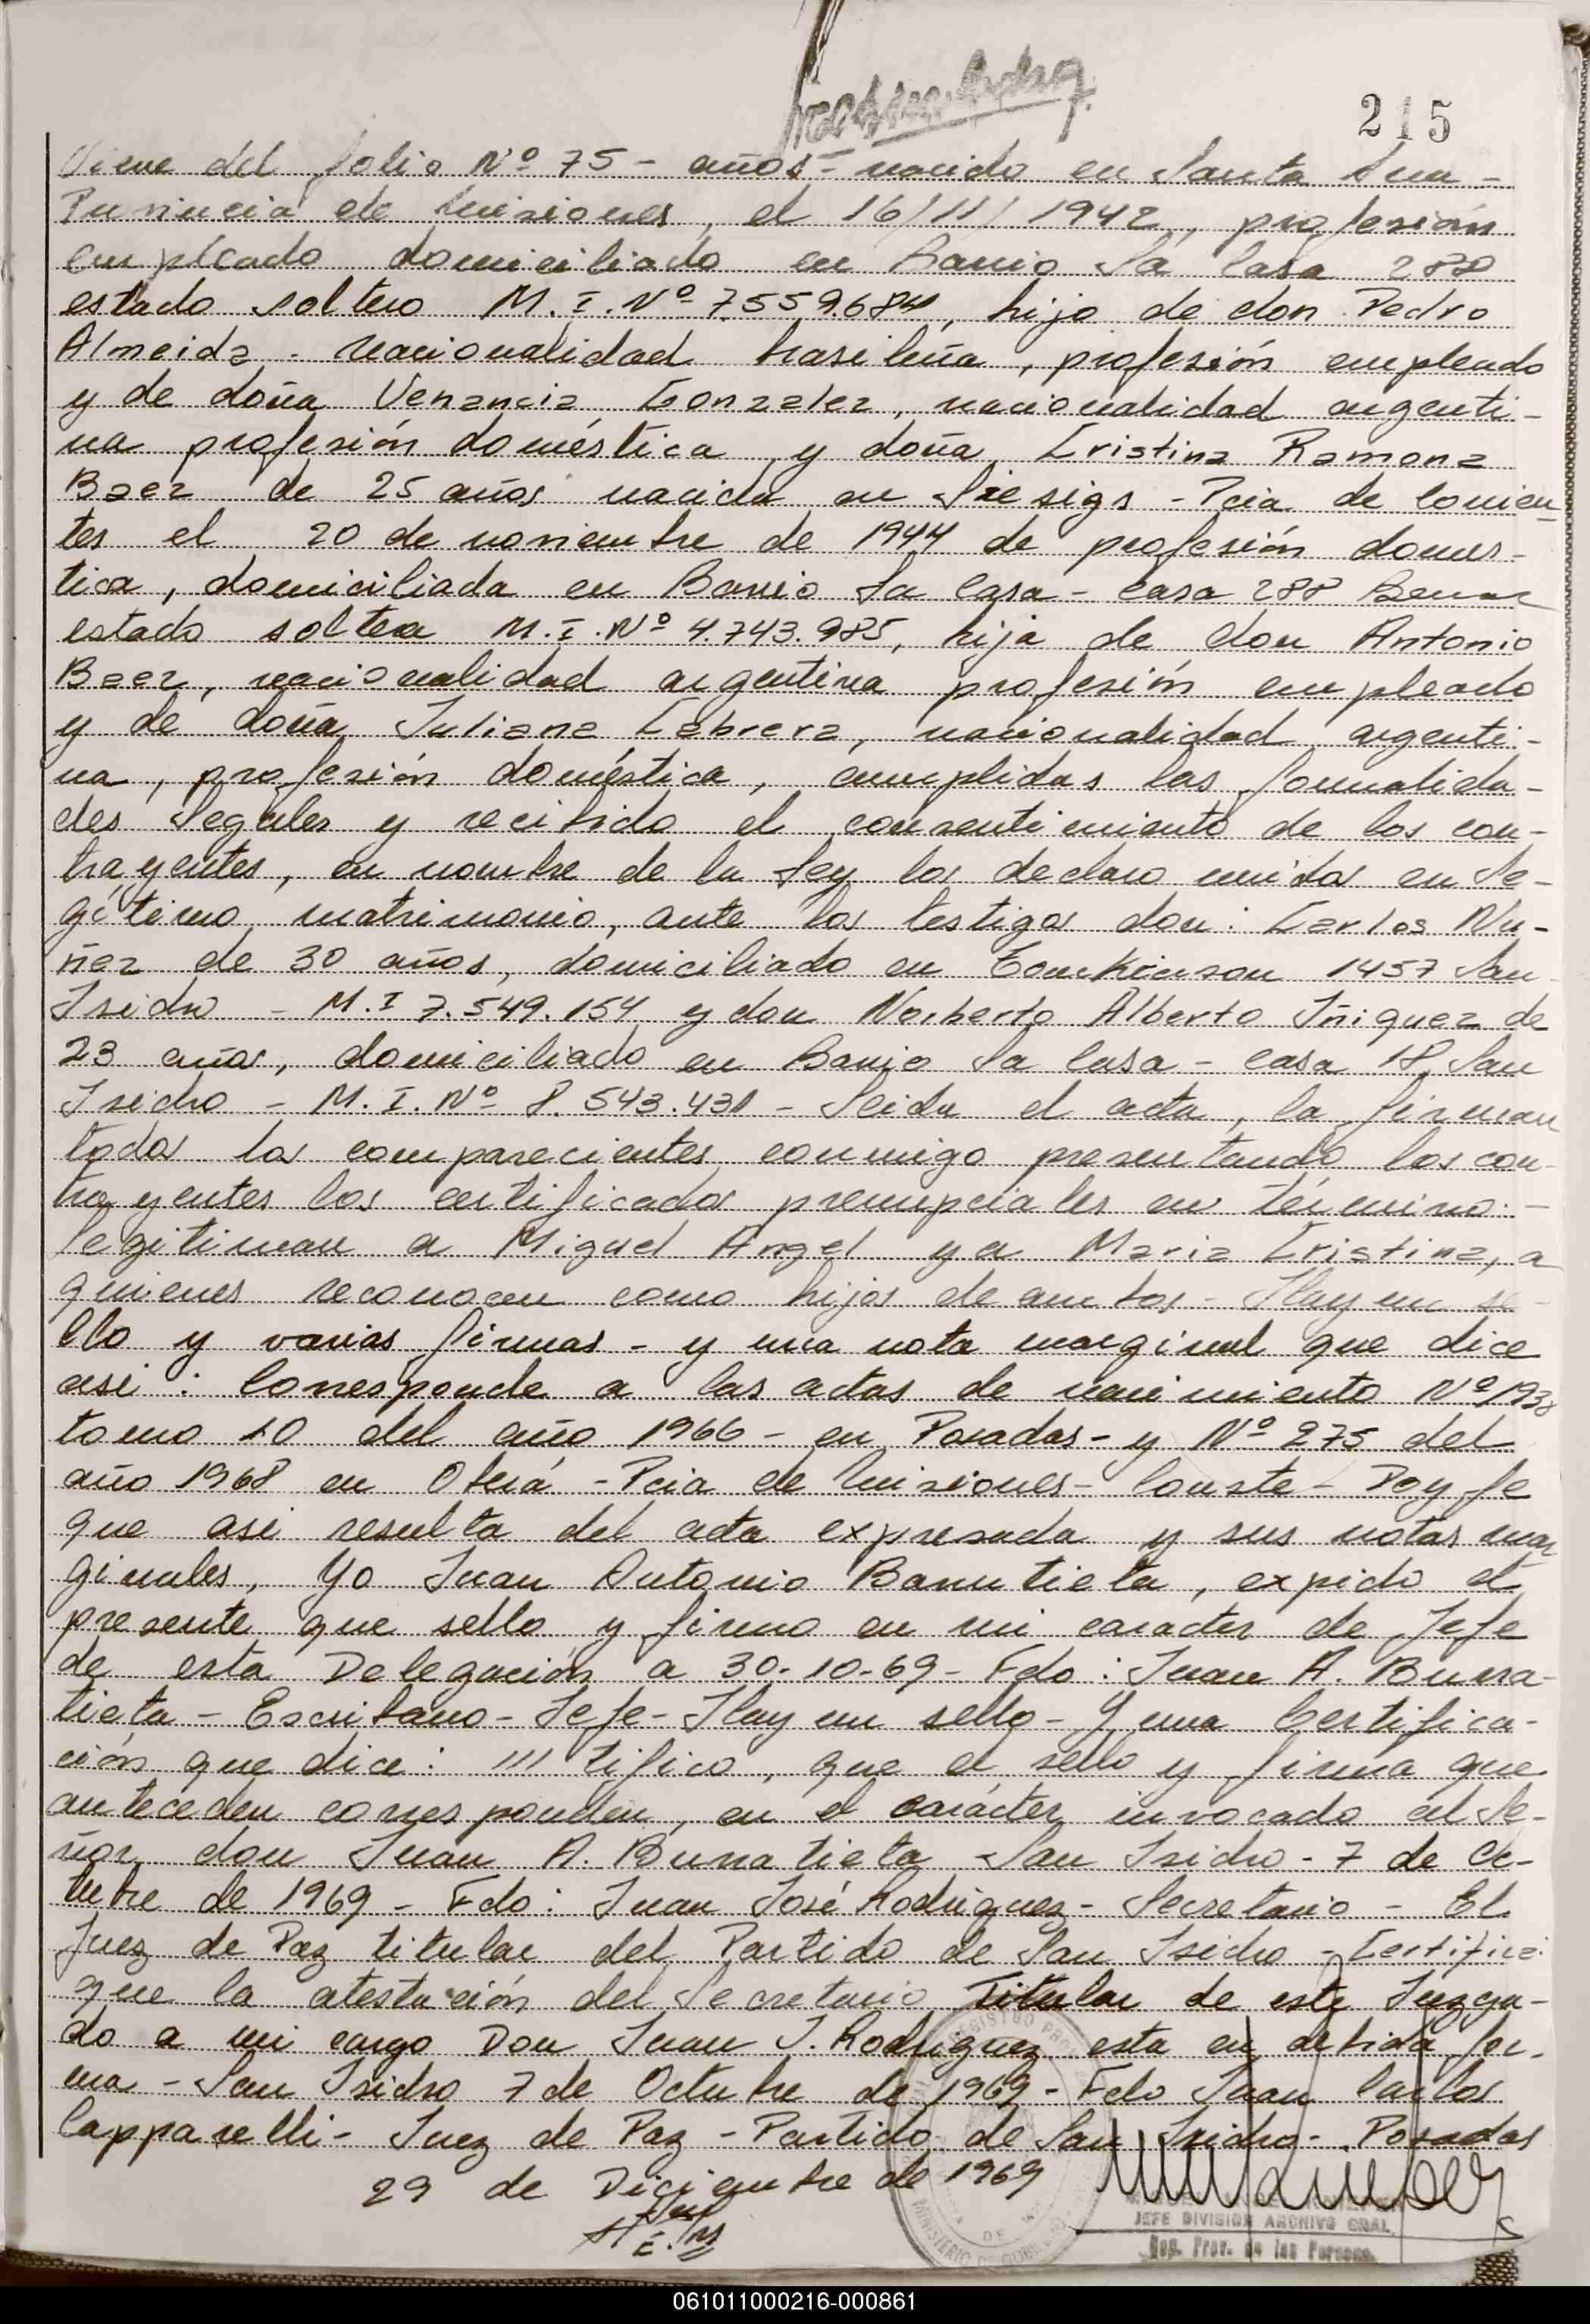 215
Viene del folio Nº 75 - años - nacido en Santa Ana -
Provincia de Misiones, el 16/11/1942, profesión
empleado domiciliado en Barrio La Casa 288
estado soltero M.I. Nº 7.559.684, hijo de don Pedro
Almeida - nacionalidad brasileña, profesión empleado
y de doña Venancia Gonzalez, nacionalidad argenti-
na profesión doméstica y doña Cristina Ramona
Baez de 25 años nacida en - Pcia de Corrien-
tes el 20 de noviembre de 1944 de profesión domes-
tica, domiciliada en Barrio La Casa - casa 288
estado soltera M.I. Nº 4.743.985, hija de don Antonio
Baez, nacionalidad argentina profesión empleado
y de doña Juliana Cabrera, nacionalidad argenti-
na, profesión doméstica, cumplidas las formalida-
des legales y recibido el consentimiento de los con-
trayentes, en nombre de la Ley los declaro unidos en le-
gítimo matrimonio, ante los testigos don: Carlos Nu-
ñez de 30 años, domiciliado en Tomkinson 1457 San
Isidro - M.I 7.549.154 y don Norberto Alberto Iñiguez de
23 años, domiciliado en Barrio La Casa - casa 18 San
Isidro - M.I. Nº 8.543.431 - Leida el acta, la firman
todos los comparecientes conmigo presentando los con-
trayentes los certificados prenupciales en término. -
legitiman a Miguel Angel y a Maria Cristina, a
quienes reconocen como hijos de ambos - Hay un se-
llo y varias firmas - y una nota marginal que dice
asi: Corresponde a las actas de nacimiento Nº 1938
tomo 10 del año 1966 - en Posadas - y Nº 275 del
año 1968 en Oberá - Pcia de Misiones - Conste - Doy fe
que asi resulta del acta expresada y sus notas mar
ginales, Yo Juan Antonio , expido el
presente que sello y firmo en mi caracter de Jefe
de esta Delegación a 30-10-69 - Fdo: Juan A. Burra-
tieta - Escribano - Jefe - Hay un sello - Y una Certifica-
ción que dice: /// tifico, que el sello y firma que
anteceden corresponden, en el carácter invocado al Se-
ñor don Juan A. Burratieta San Isidro - 7 de Oc-
tubre de 1969 - Fdo: Juan José Rodriguez - Secretario - El
Juez de Paz titular del Partido de San Isidro - Certifica:
que la atestación del Secretario Titular de este Juzga-
do a mi cargo Don Juan J. Rodriguez esta en debida for-
ma - San Isidro 7 de Octubre de 1969 - Fdo Juan Carlos
Capparelli - Juez de Paz - Partido de San Isidro - Posadas
29 de Diciembre de 1969
JEFE DIVISION ARCHIVO GRAL.
Reg. Prov. de las Personas
061011000216-000861